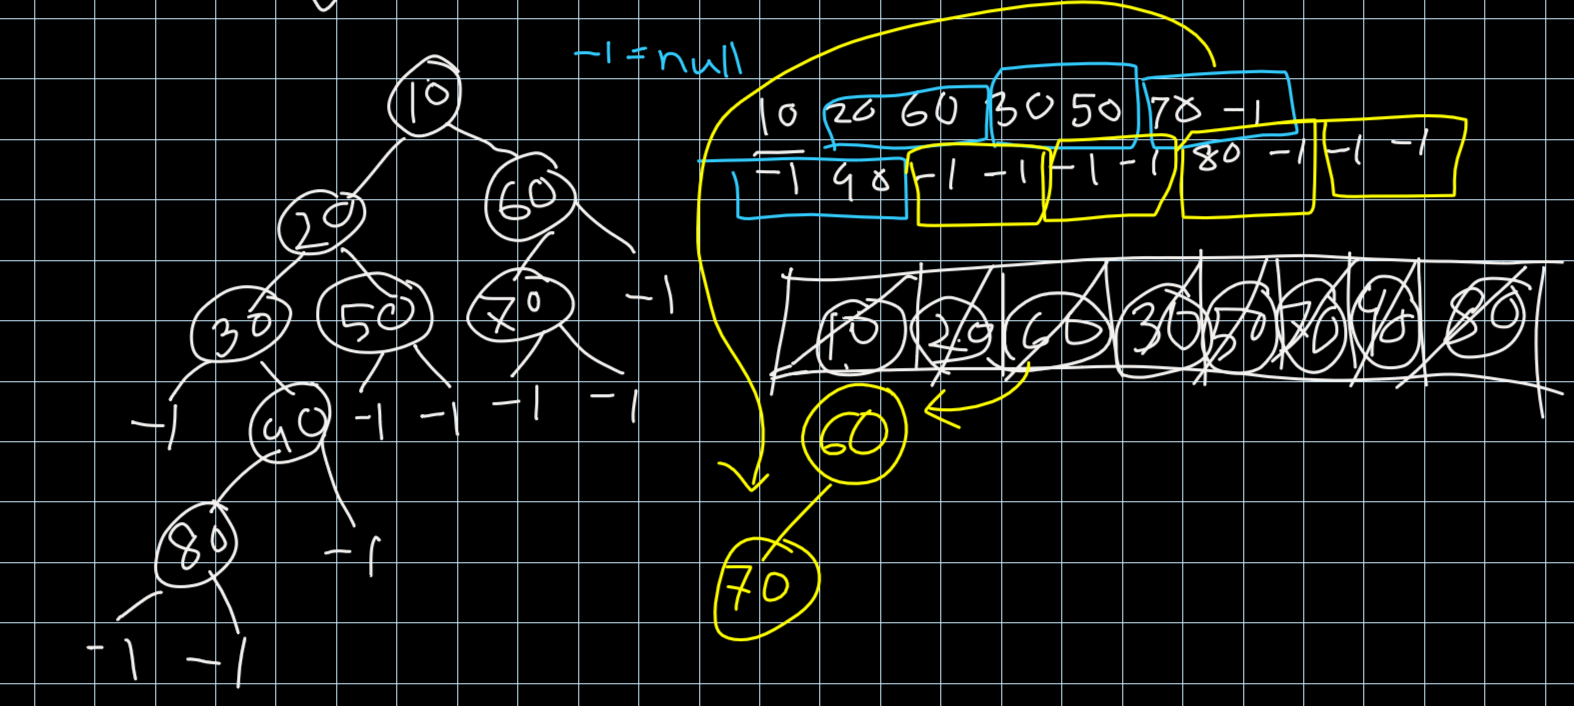 -1 = null
10
20 60
30 50 70 -1
-1 40 -1 -1 -1 -1
80 -1
-1 -1
10 20 60 30 50 70 -1
-1 40 -1 -1 -1 -1 80 -1 -1 -1
10 20 60 30 50 70 40 80
60
70